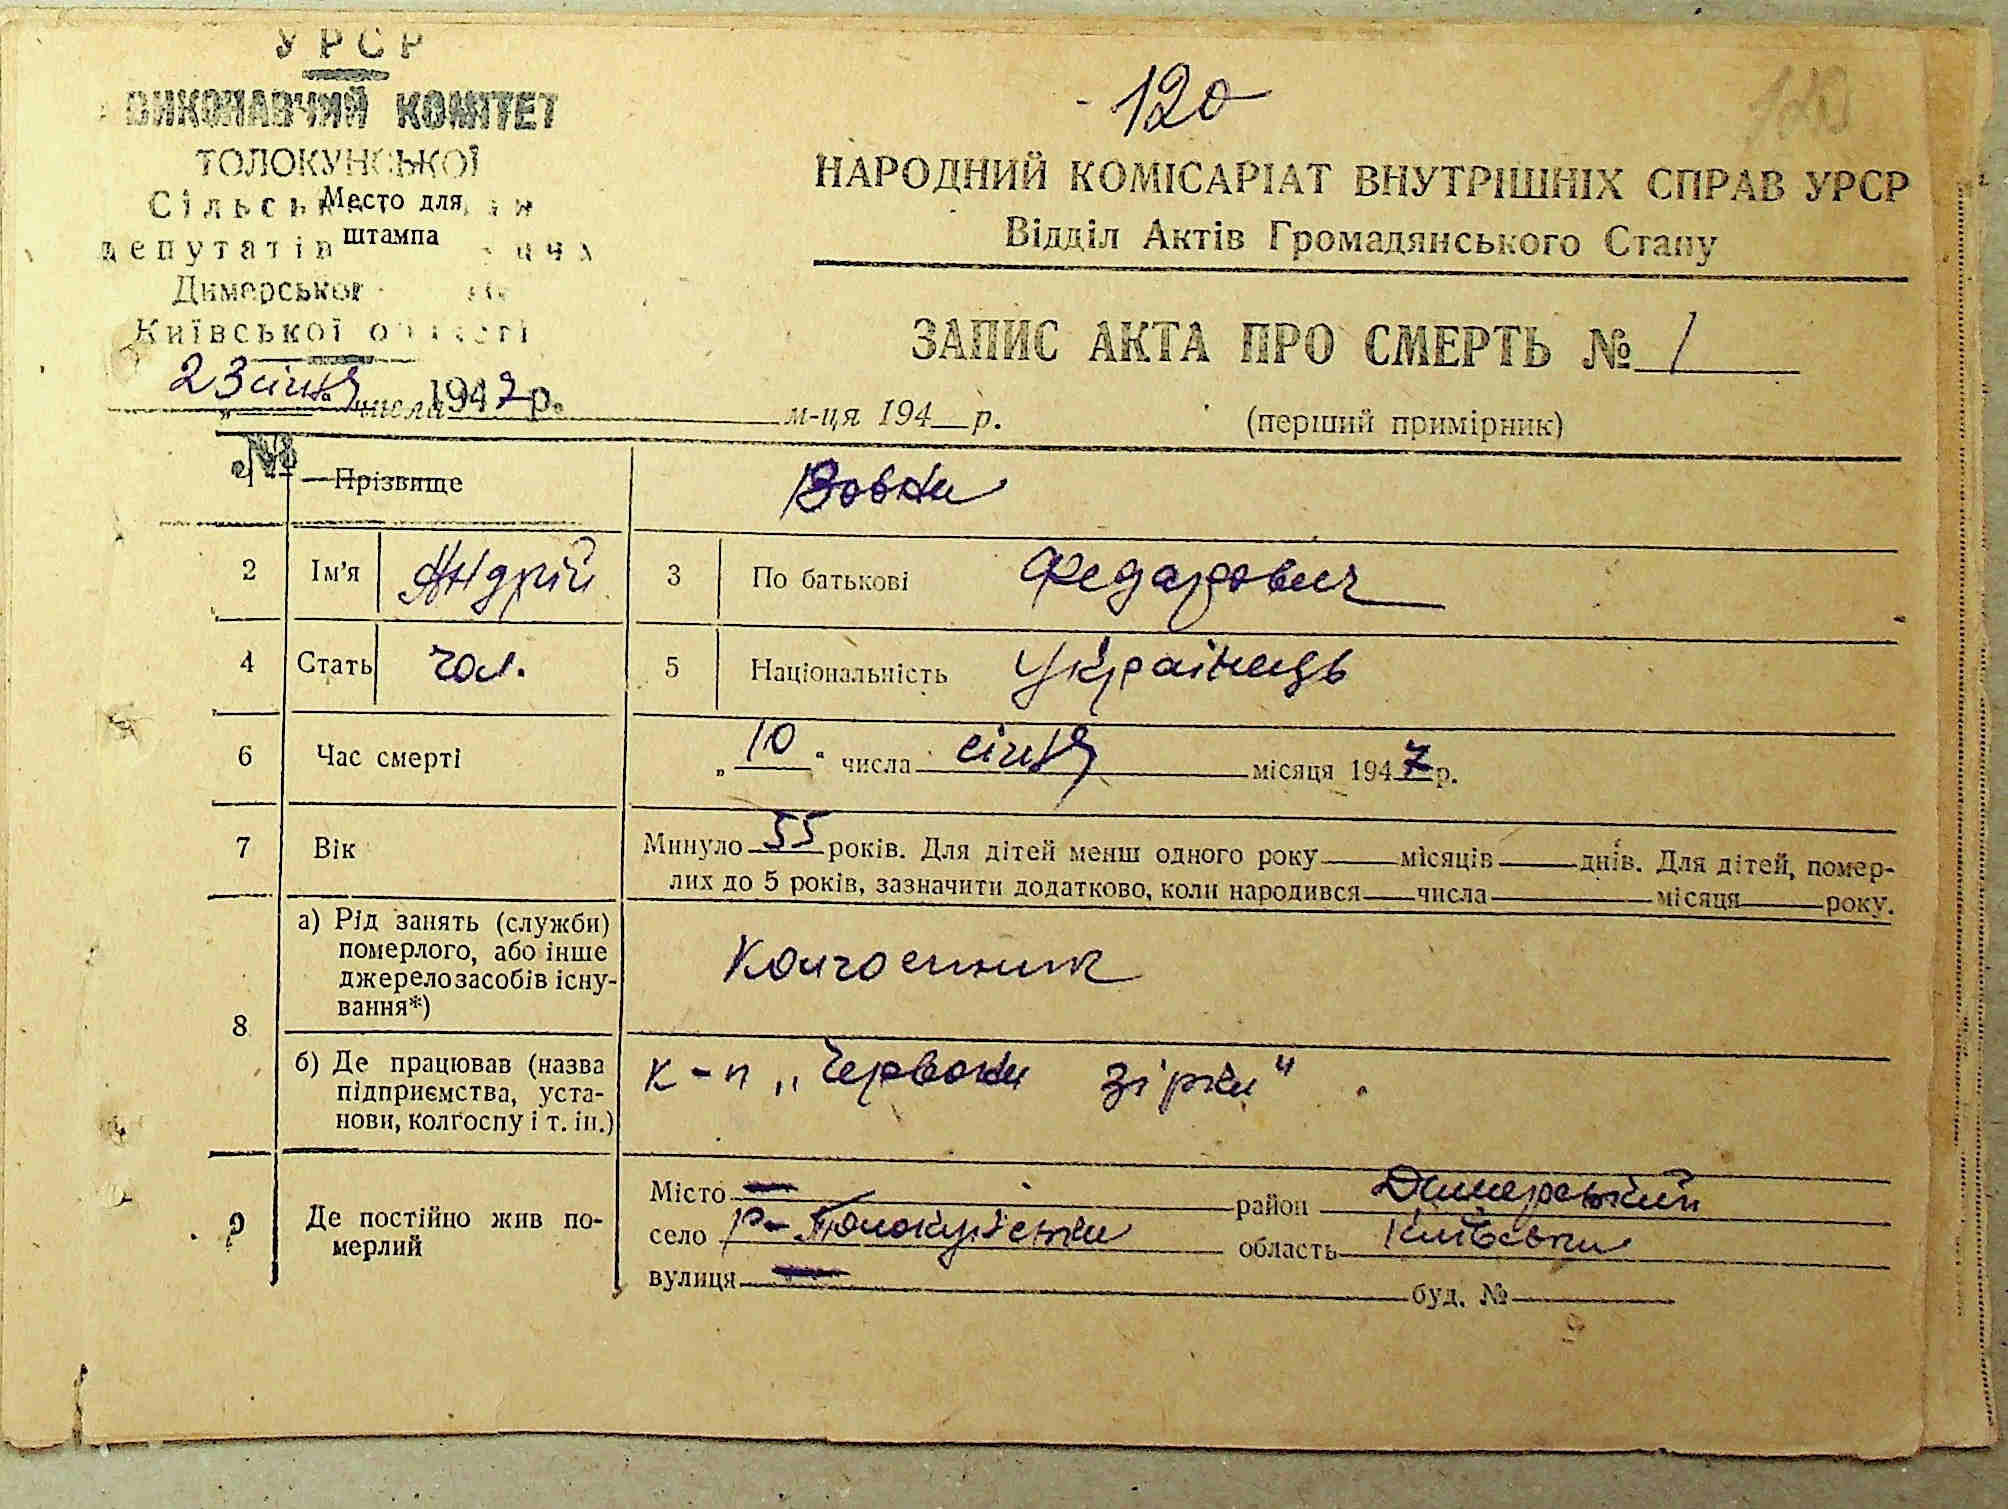 УРСР
ВИКОНАВЧИЙ КОМІТЕТ
ТОЛОКУНСЬКОЇ
Сільськ
Место для
штампа
депутатів
Димерської
Київської області
23 січня 1947 р.
числа м-ця 194 р.
- 120
120
НАРОДНИЙ КОМІСАРІАТ ВНУТРІШНІХ СПРАВ УРСР
Відділ Актів Громадянського Стану
ЗАПИС АКТА ПРО СМЕРТЬ № 1
(перший примірник)
№
1 Прізвище Вовки
2 Ім'я Андрій 3 По батькові Федарович
4 Стать чол. 5 Національність Українець
6 Час смерті „10“ числа січня місяця 1947 р.
7 Вік Минуло 55 років. Для дітей менш одного року місяців днів. Для дітей, помер-
лих до 5 років, зазначити додатково, коли народився числа місяця року.
8 а) Рід занять (служби)
померлого, або інше
джерело засобів існу-
вання*)
Колгоспник
б) Де працював (назва
підприємства, уста-
нови, колгоспу і т. ін.)
к-п „Червона зірка“
9 Де постійно жив по-
мерлий
Місто — район Димерський
село область Київська
вулиця — буд. №